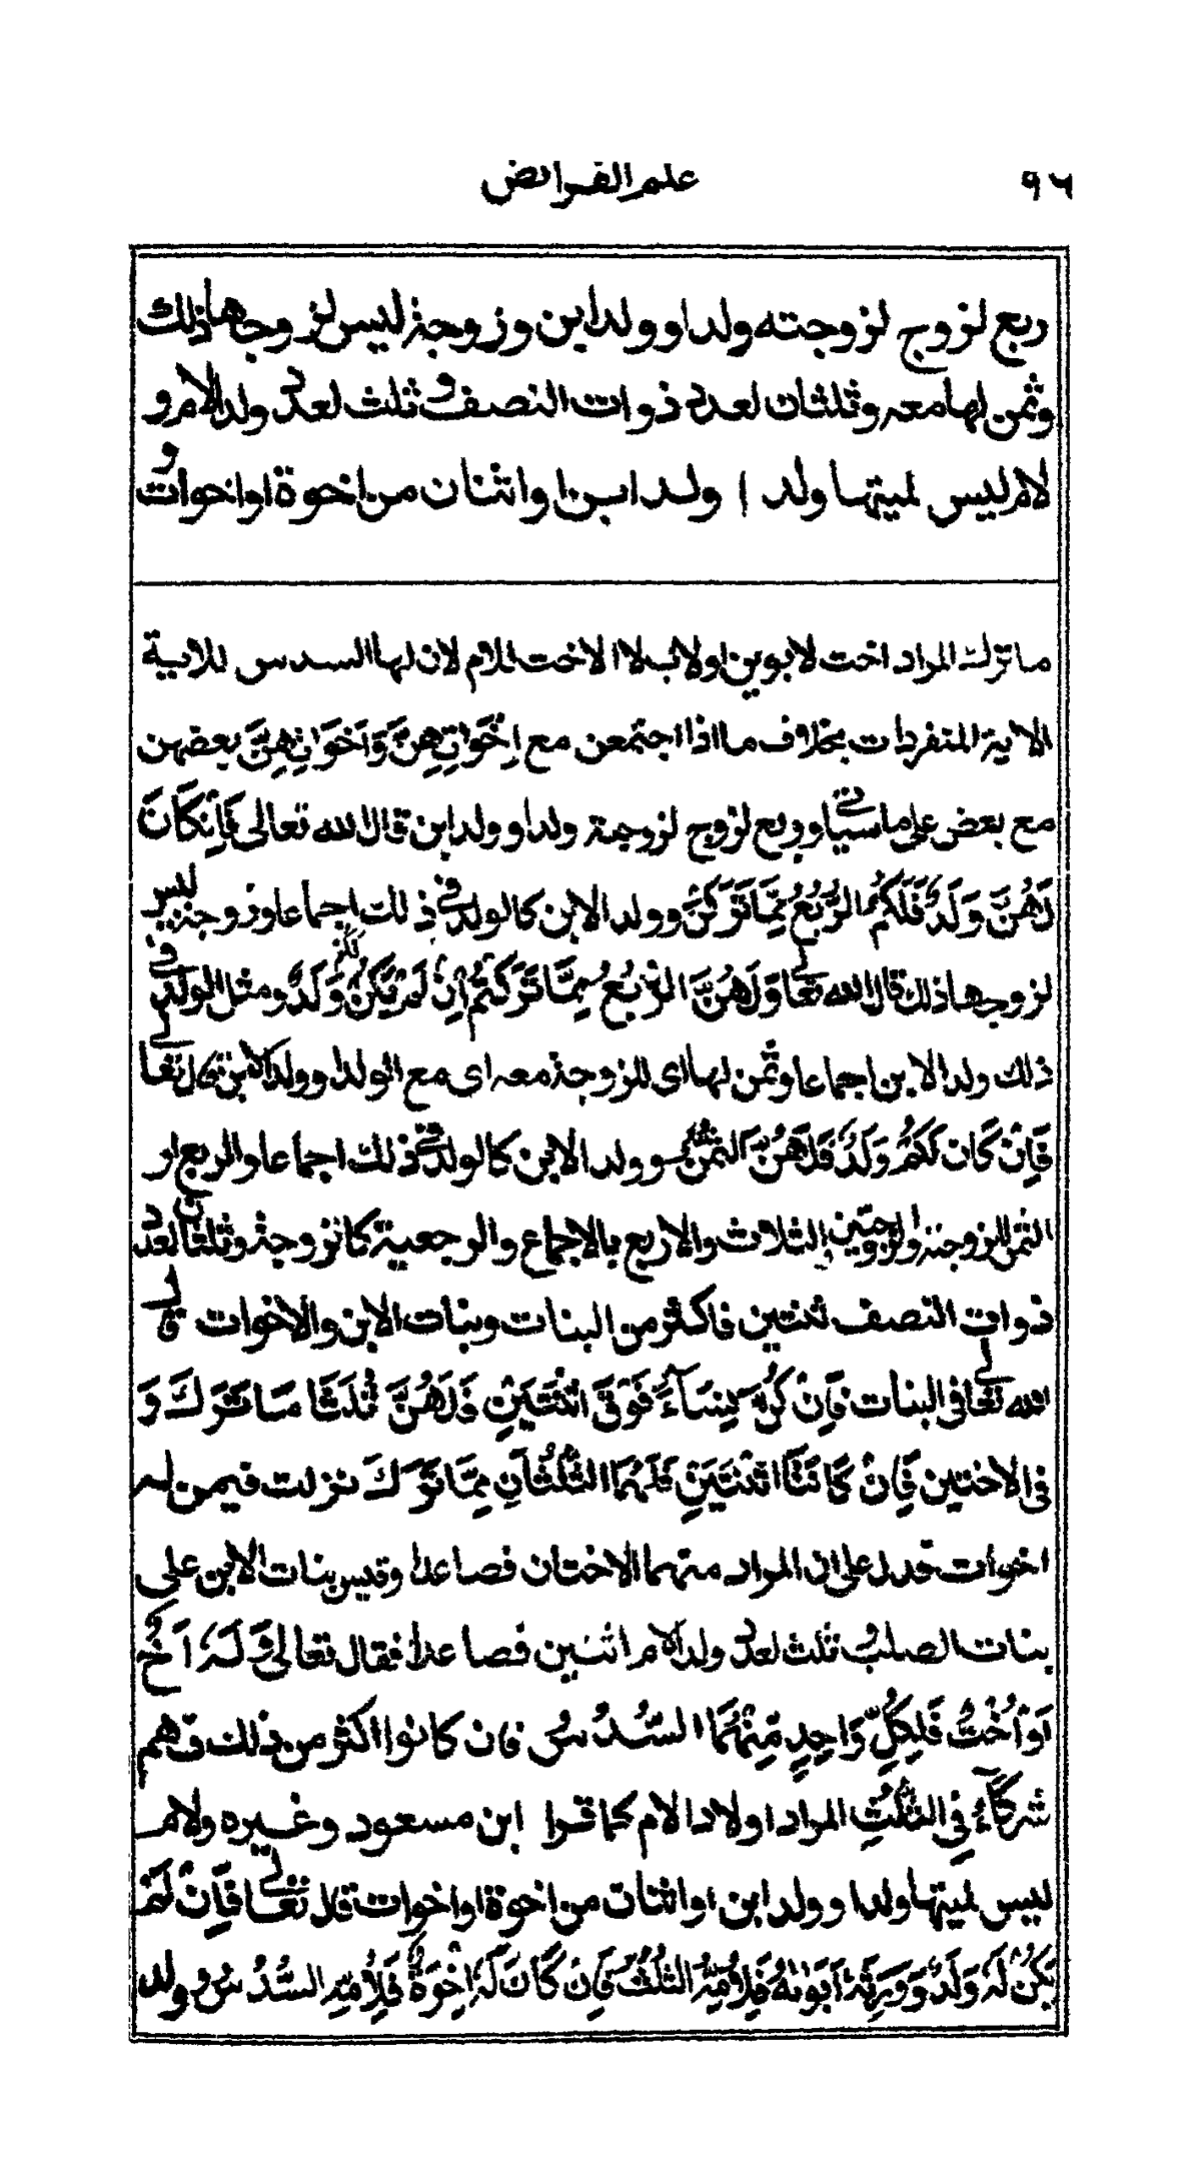 ٩٦ علم الفرائض
ربع لزوج لزوجته ولد او ولد ابن وزوجة ليس لزوجها ذلك
وثمن لها معه وثلثان لعدد ذوات النصف وثلث لعدد ولد الام و
لام ليس لميتها ولد ا ولد ابن او اثنان من اخوة او اخوات و
ما ترك المراد اخت لابوين او لاب لا الاخت للام لان لها السدس للاية
الاية المنفردات بخلاف ما اذا اجتمعن مع اِخْوَاتِهِنَّ وَاَخَوَاتِهِنَّ بعضهن
مع بعض على ما سياتي وربع لزوج لزوجته ولد او ولد ابن قال الله تعالى فَاِنْ كَانَ
لَهُنَّ وَلَدٌ فَلَكُمُ الرُّبُعُ مِمَّا تَرَكْنَ وولد الابن كالولد في ذلك اجماعا وزوجة ليس
لزوجها ذلك قال الله تعالى وَلَهُنَّ الرُّبُعُ مِمَّا تَرَكْتُمْ اِنْ لَمْ يَكُنْ لَكُمْ وَلَدٌ ومثل الولد في
ذلك ولد الابن اجماعا وثمن لها اى للزوجة معه اى مع الولد او ولد الابن قال تعالى
فَاِنْ كَانَ لَكُمْ وَلَدٌ فَلَهُنَّ الثُّمُنُ وولد الابن كالولد في ذلك اجماعا والربع او
الثمن للزوجة والزوجتين والثلاث والاربع بالاجماع والرجعية كالزوجة وثلثان لعدد
ذوات النصف ثنتين فاكثر من البنات وبنات الابن والاخوات قال
الله تعالى فى البنات فَاِنْ كُنَّ نِسَآءً فَوْقَ اثْنَتَيْنِ فَلَهُنَّ ثُلُثَا مَا تَرَكَ وَ
فى الاختين فَاِنْ كَانَتَا اثْنَتَيْنِ فَلَهُمَا الثُّلُثَانِ مِمَّا تَرَكَ نزلت فيمن له
اخوات فدل على ان المراد منهما الاختان فصاعدا وقيس بنات الابن على
بنات الصلب وثلث لعدد ولد الام اثنين فصاعدا فقال تعالى وَلَهٗ اَخٌ
اَوْ اُخْتٌ فَلِكُلِّ وَاحِدٍ مِّنْهُمَا السُّدُسُ فان كانوا اكثر من ذلك فهم
شُرَكَآءُ فِى الثُّلُثِ المراد اولاد الام كما قرا ابن مسعود وغيره ولام
ليس لميتها ولد او ولد ابن او اثنان من اخوة او اخوات قال تعالى فَاِنْ لَمْ
يَكُنْ لَهٗ وَلَدٌ وَوَرِثَهٗ اَبَوٰاهُ فَلِاُمِّهِ الثُّلُثُ فَاِنْ كَانَ لَهٗ اِخْوَةٌ فَلِاُمِّهِ السُّدُسُ وولد